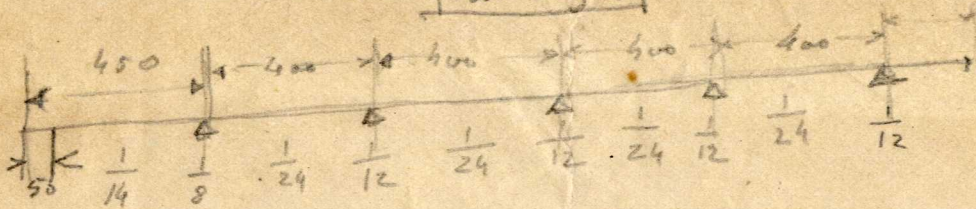 450 400 400 400 400
50 1/14 1/8 1/24 1/12 1/24 1/12 1/24 1/12 1/24 1/12